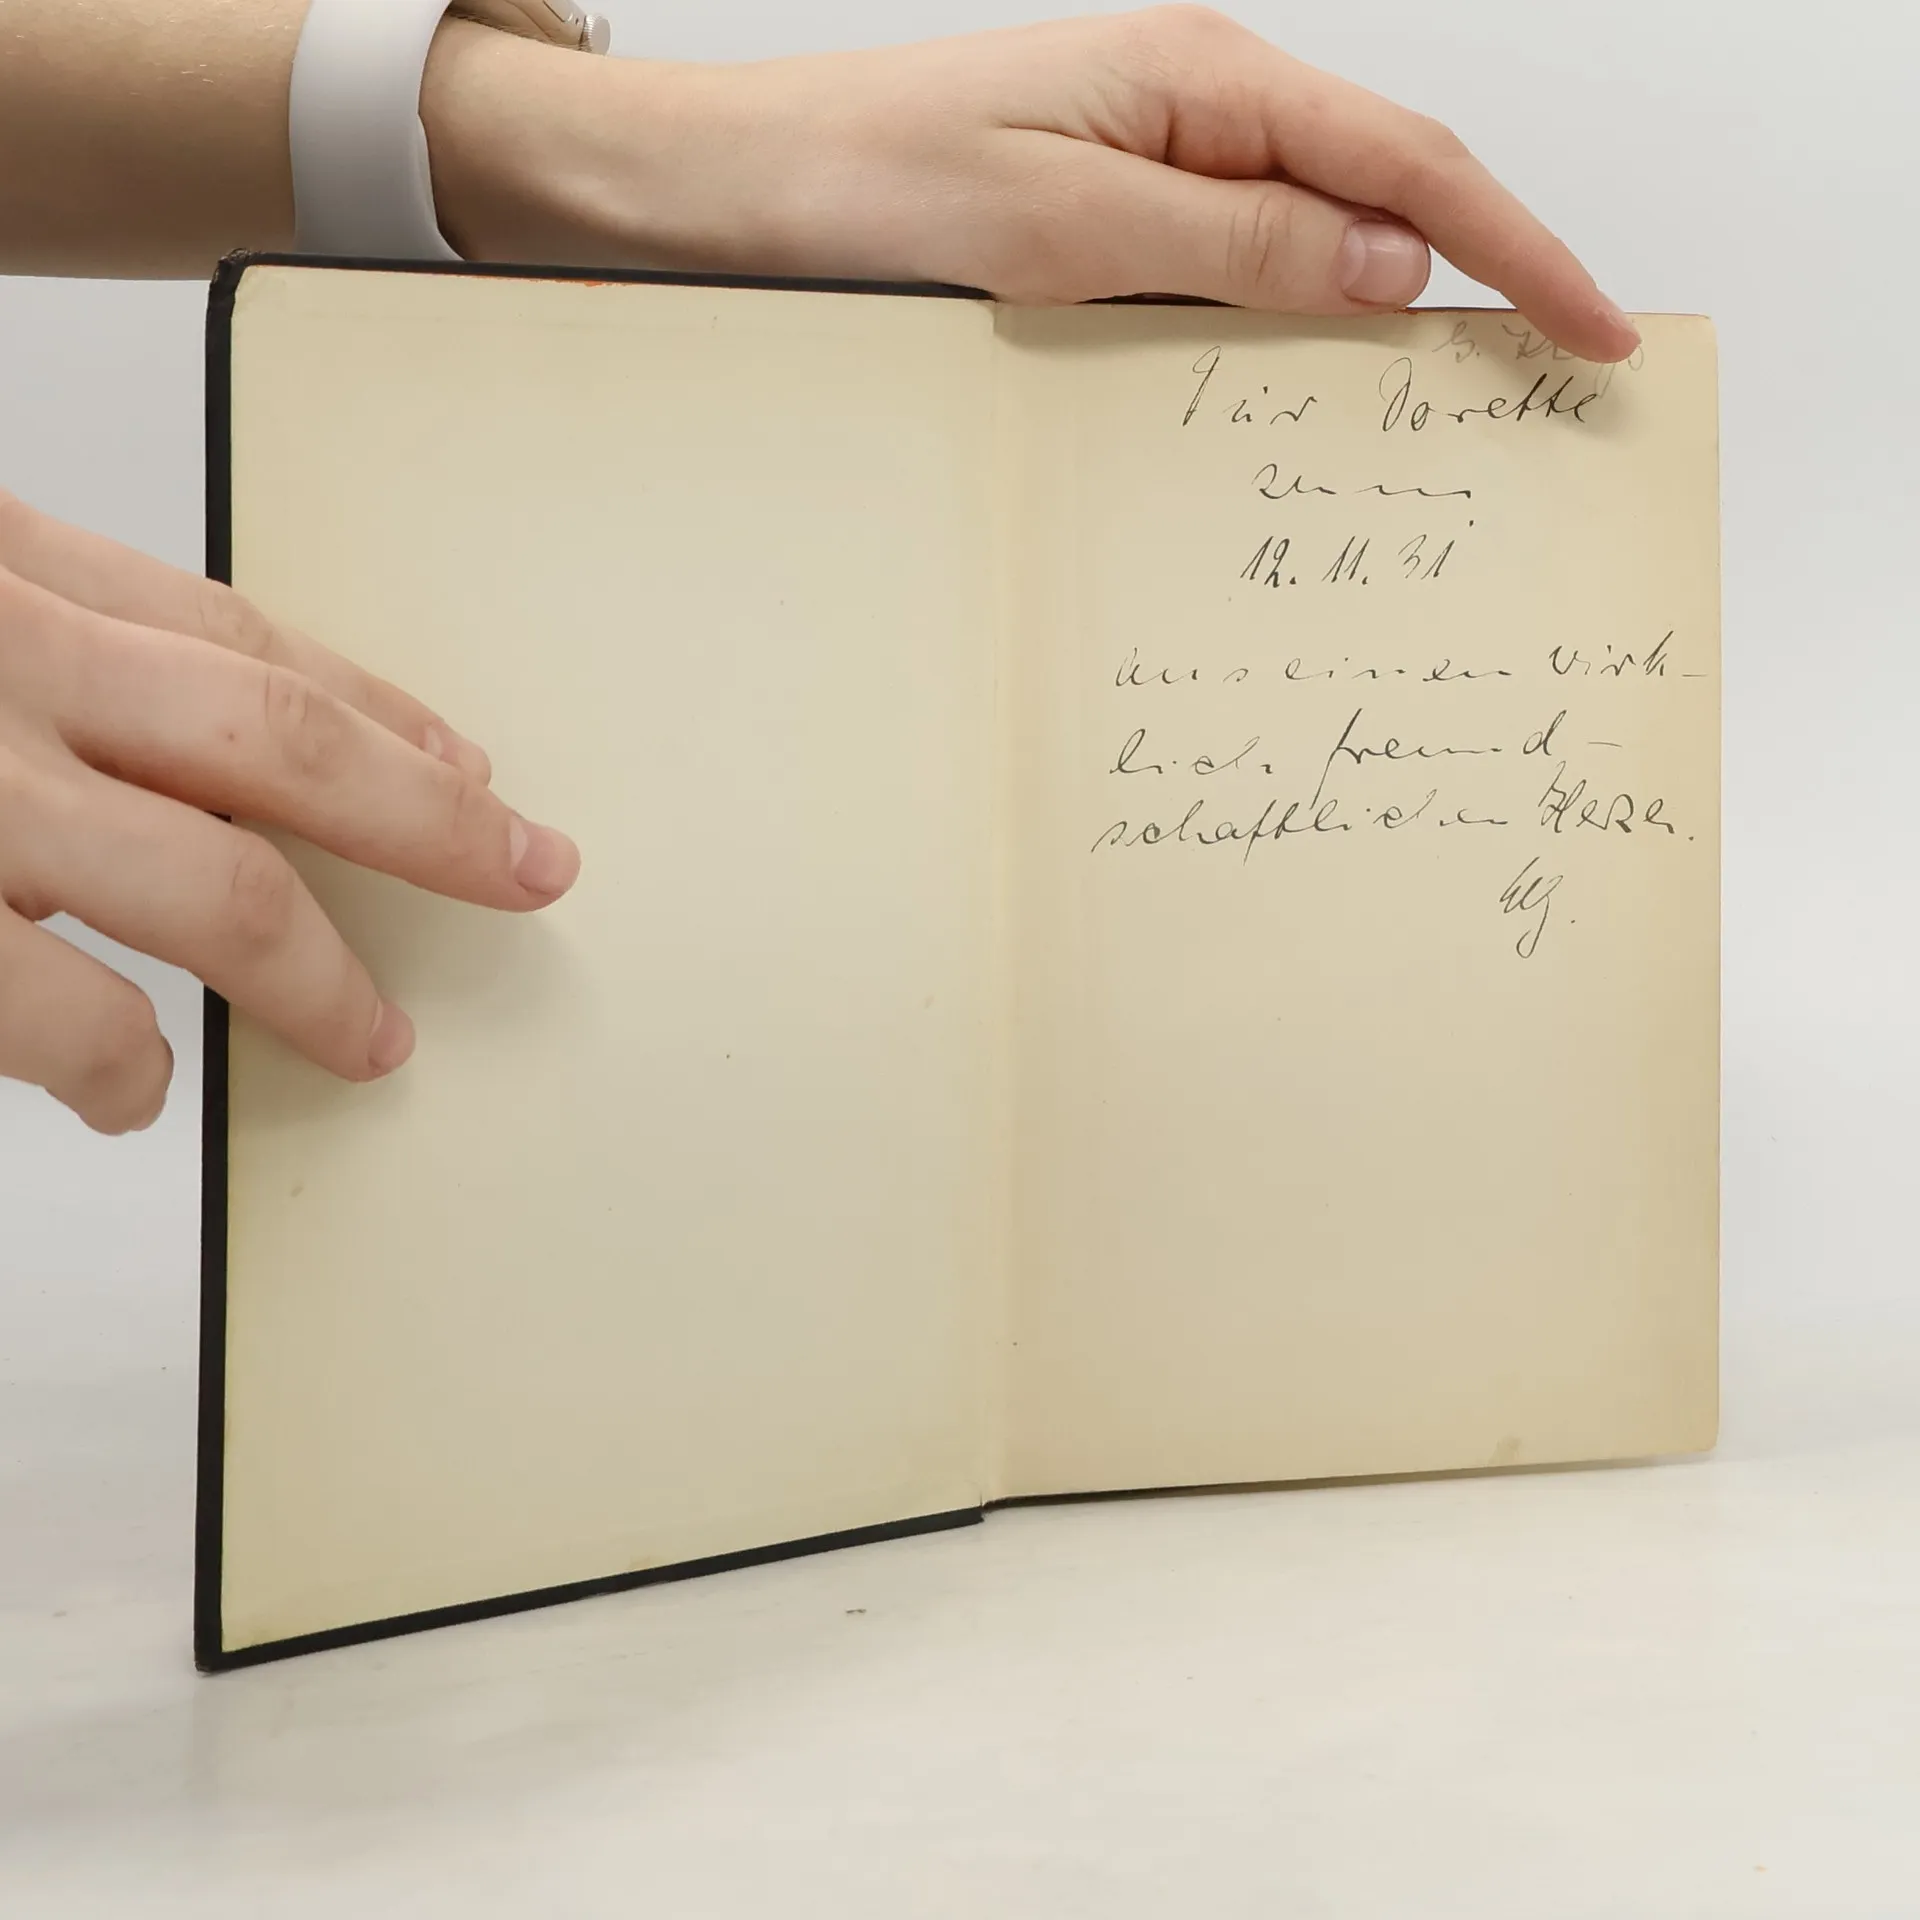 Für Dorette
zum
12. 11. 31
aus einen wirk-
lich freund-
schaftlichen Herzen.